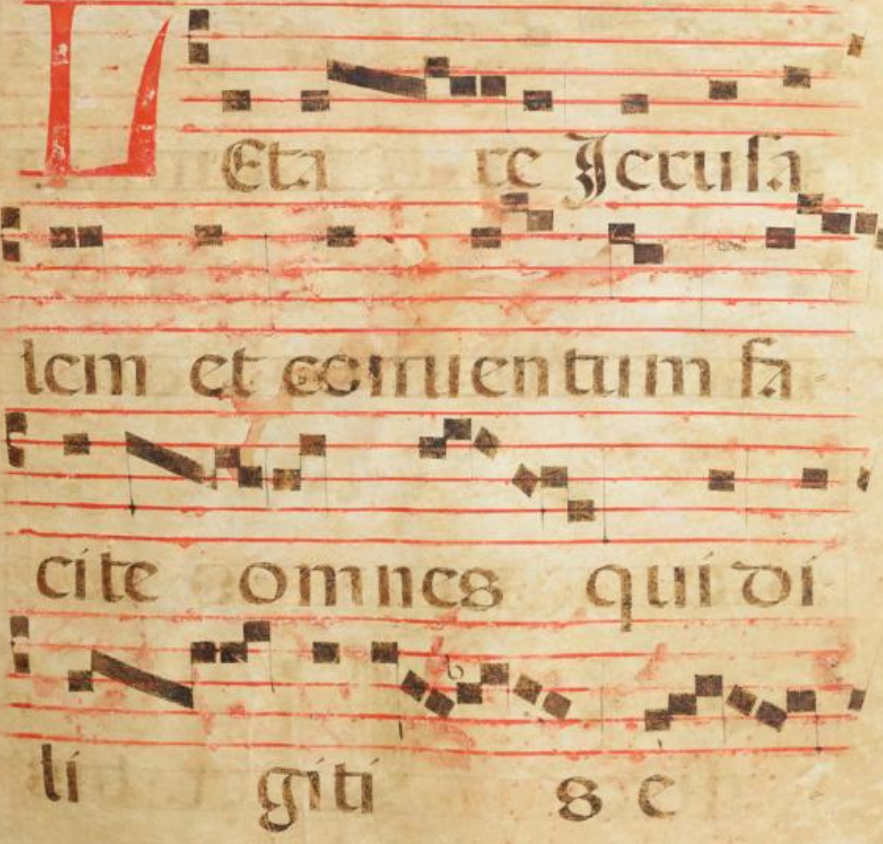 LEta re Jerusa
lem et conuentum fa
cite omnes qui di
li giti s e